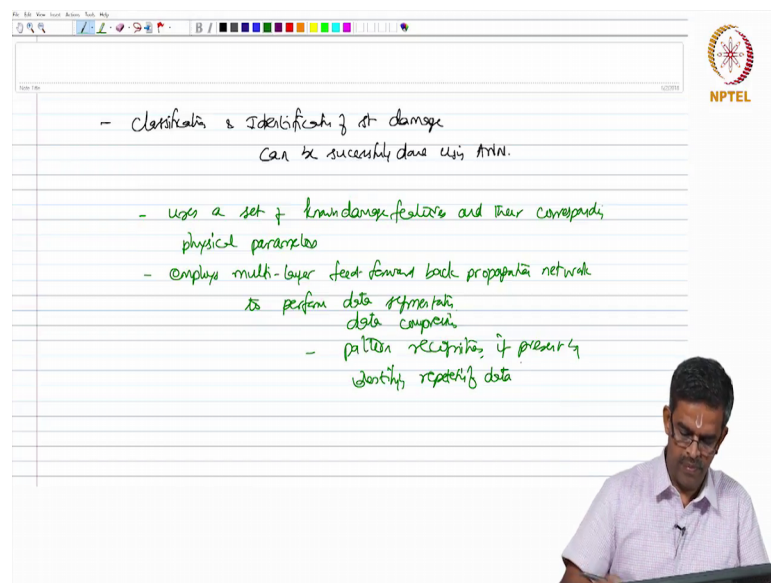 File Edit View Insert Actions Tools Help
B I
Note Title
5/2/2018
NPTEL
- Classification & Identification of st damage
can be sucessfully done using ANN.
- uses a set of known damage features and their corresponding
physical parameters
- employs multi-layer feed-forward back propagation network
to perform data segmentation
data compression
- pattern recognition, if present &
identifying repeating data